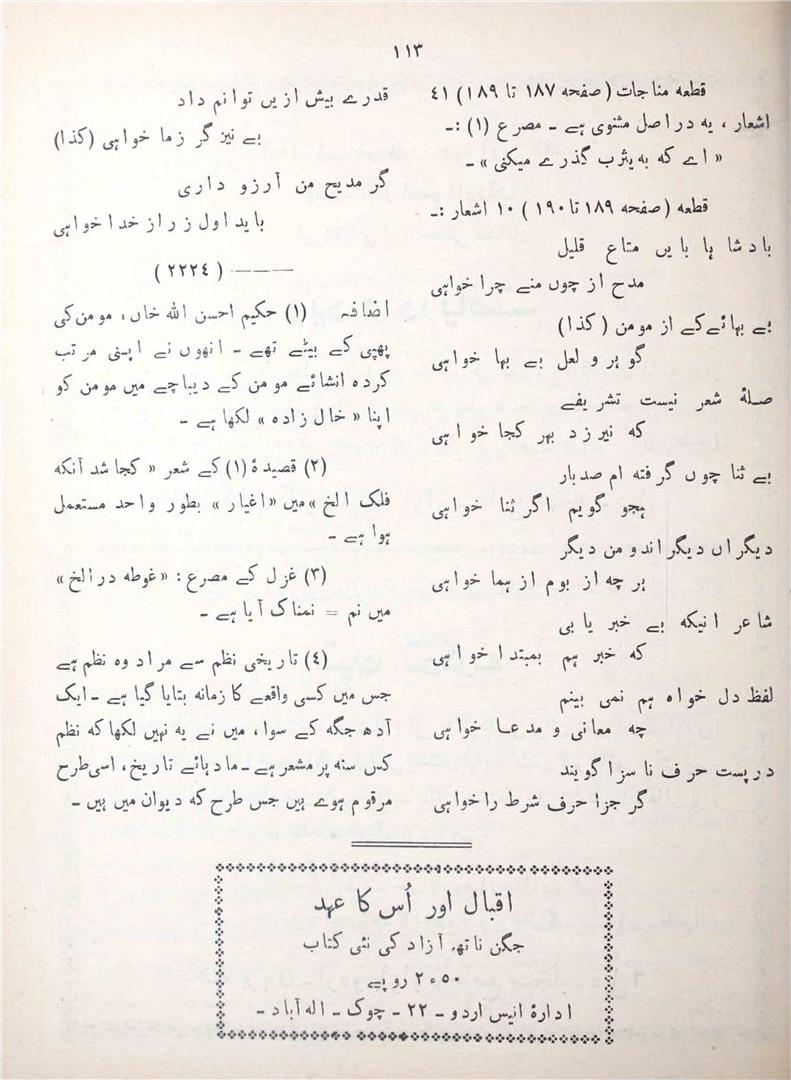 ۱۱۳
قطعہ مناجات (صفحہ ۱۸۷ تا ۱۸۹) ۴۱
اشعار ، یہ دراصل مثنوی ہے ۔ مصرع (۱) :۔
« اے کہ بہ یثرب گذرے میکنی » ۔
قطعہ (صفحہ ۱۸۹ تا ۱۹۰) ۱۰ اشعار :۔
بادشاہا بایں متاع قلیل
مدح از چوں منے چرا خواہی
بے بہائے کے از مومن (کذا)
گوہر و لعل بے بہا خواہی
صلۂ شعر نیست تشریفے
کہ نیرزد بہر کجا خواہی
بے ثنا چوں گرفتہ ام صدبار
ہجو گویم اگر ثنا خواہی
دیگراں دیگراند و من دیگر
ہر چہ از بوم از ہما خواہی
شاعر انیکہ بے خبر یابی
کہ خبر ہم بمبتدا خواہی
لفظ دل خواہ ہم نمی بینم
چہ معانی و مدعا خواہی
درپست حرف ناسزا گویند
گر جزا حرف شرط را خواہی
قدرے بیش ازیں توانم داد
بے نیز گر زما خواہی (کذا)
گر مدیح من آرزو داری
باید اول زر از خدا خواہی
——— (۲۲۲٤)
اضافہ (۱) حکیم احسن اللہ خاں، مومن کی
پھپی کے بیٹے تھے ۔ انھوں نے اپنی مرتب
کردہ انشائے مومن کے دیباچے میں مومن کو
اپنا « خال زادہ » لکھا ہے ۔
(۲) قصیدۂ (۱) کے شعر « کجا شد آنکہ
فلک الخ » میں « اغیار » بطور واحد مستعمل
ہوا ہے ۔
(۳) غزل کے مصرع : « غوطہ در الخ »
میں نم = نمناک آیا ہے ۔
(٤) تاریخی نظم سے مراد وہ نظم ہے
جس میں کسی واقعے کا زمانہ بتایا گیا ہے ۔ ایک
آدھ جگہ کے سوا، میں نے یہ نہیں لکھا کہ نظم
کس سنہ پر مشعر ہے ۔ مادہائے تاریخ، اسی طرح
مرقوم ہوے ہیں جس طرح کہ دیوان میں ہیں ۔
اقبال اور اُس کا عہد
جگن ناتھ آزاد کی نئی کتاب
۲ء۵۰ روپے
ادارۂ انیس اردو ۔ ۲۲ ۔ چوک ۔ الہ آباد ۔